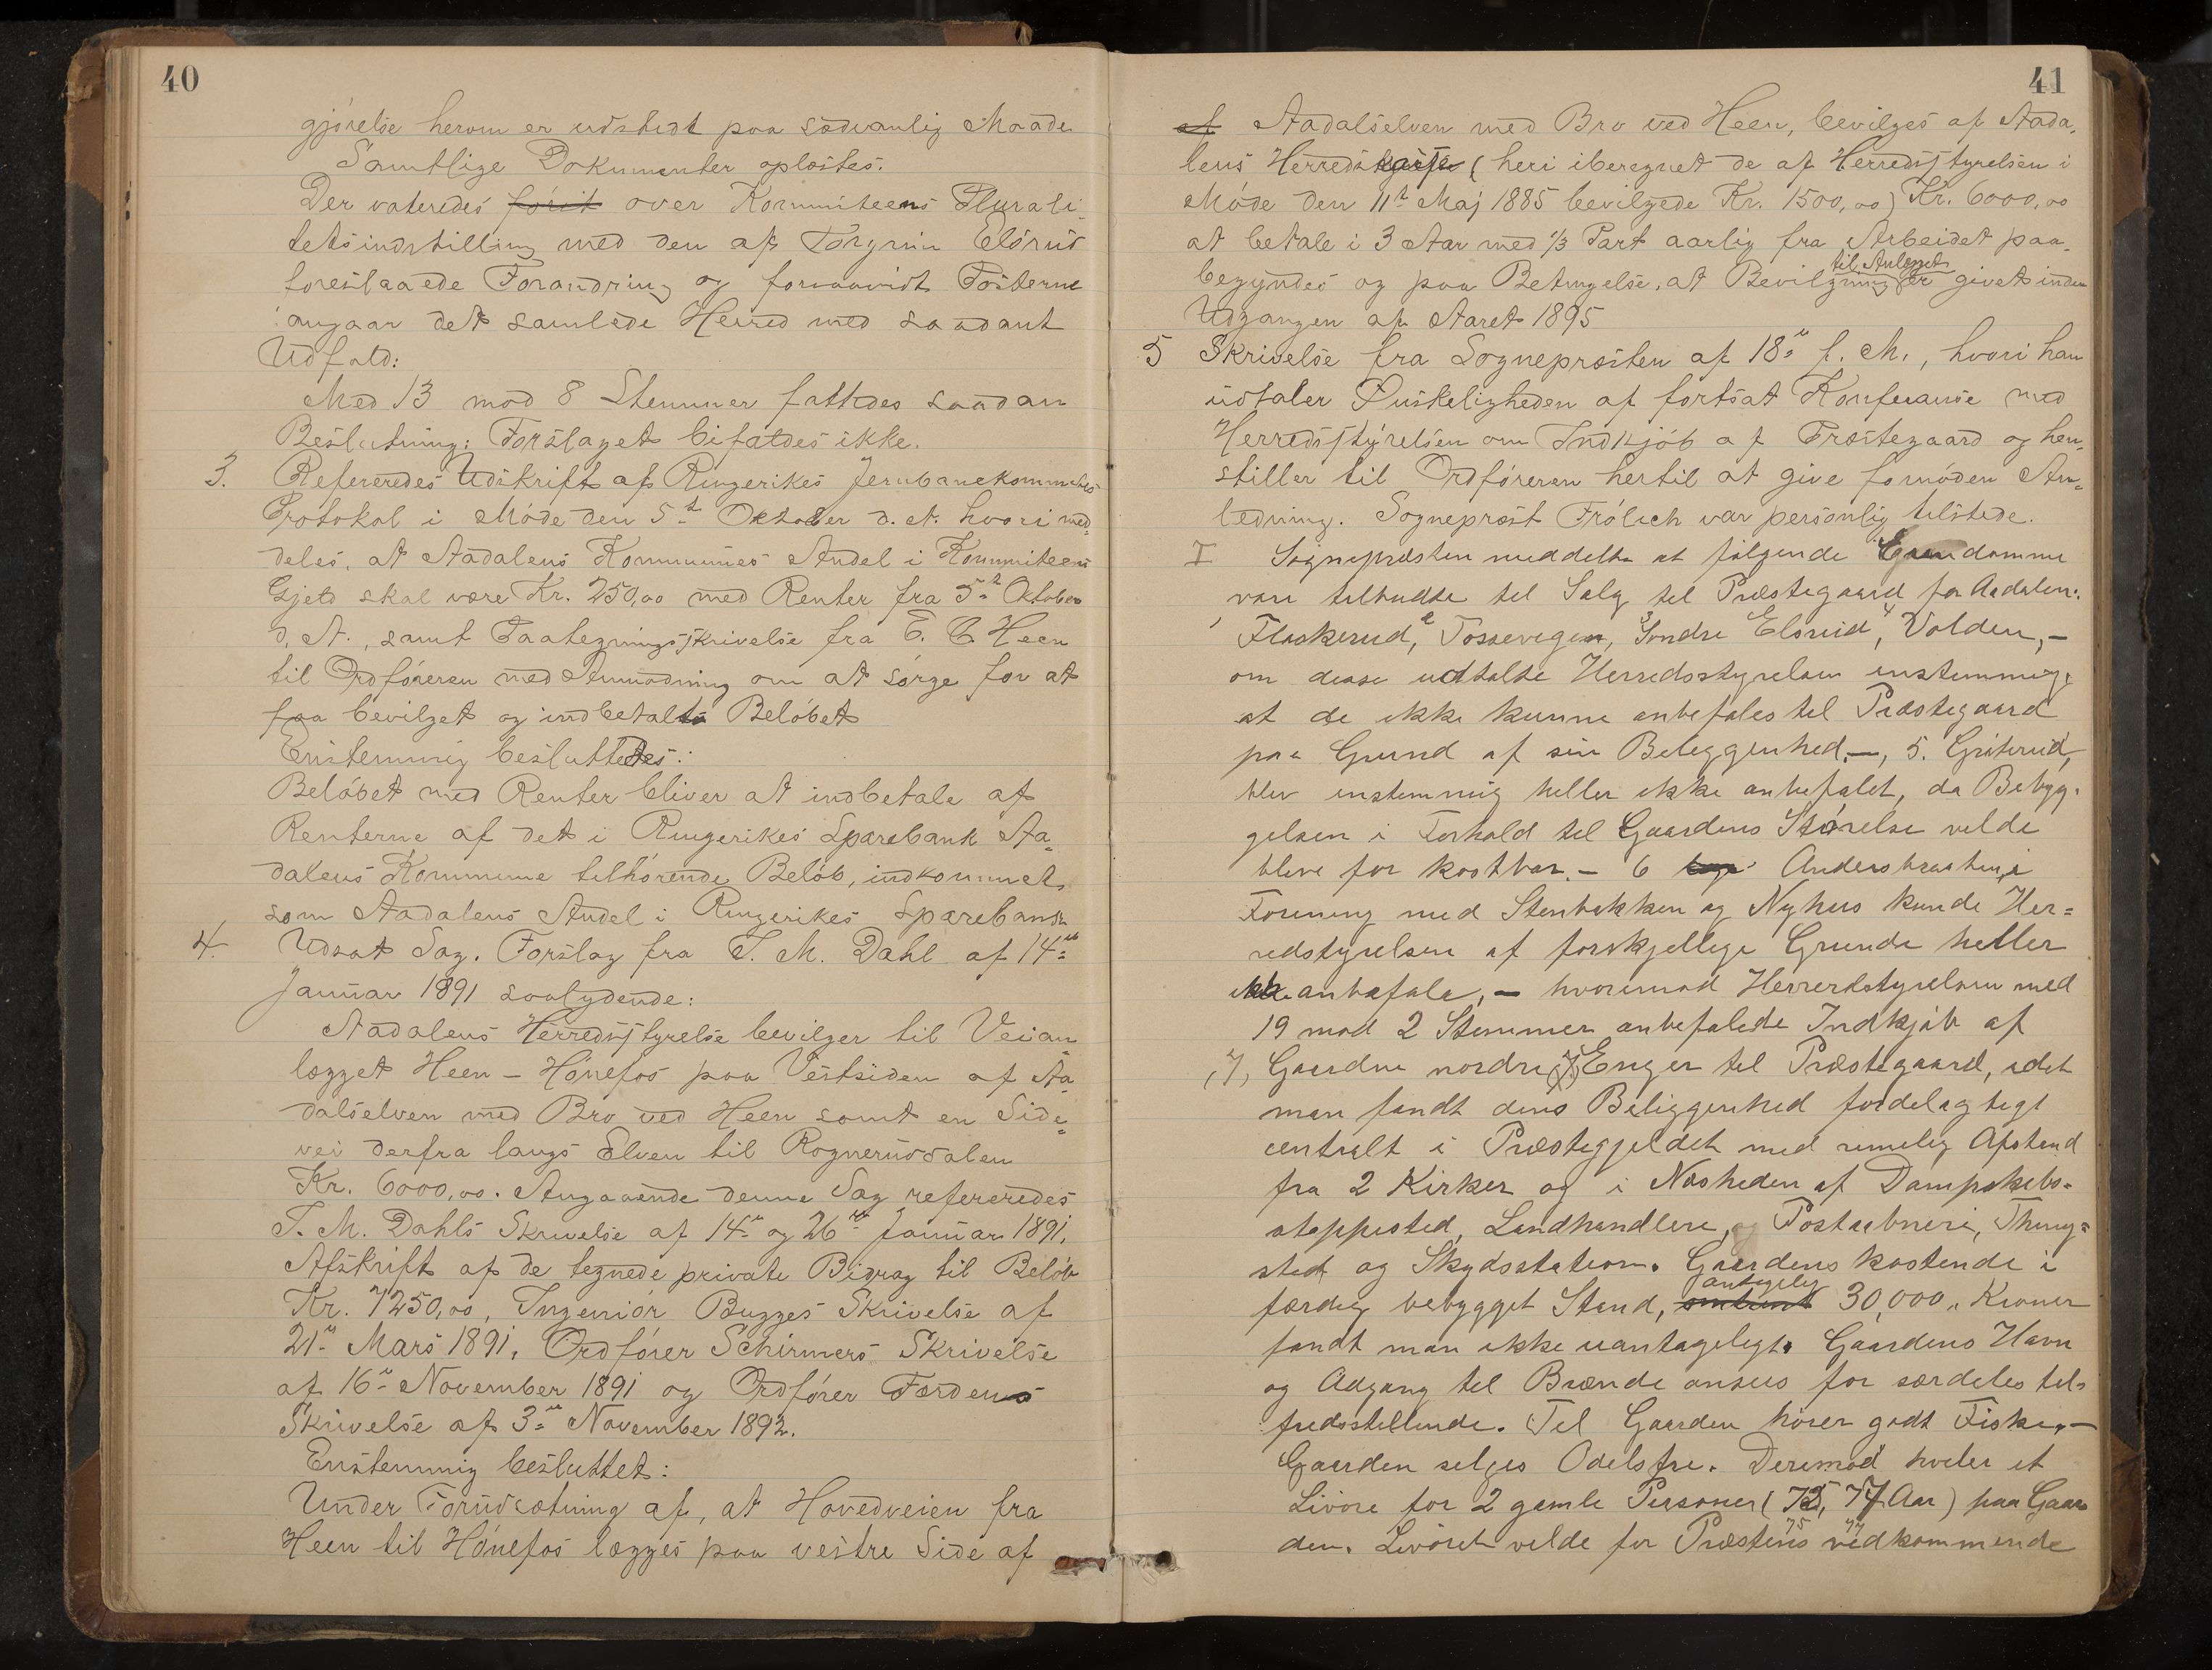 40
gjörelse herom er udstedt paa sædvanlig Maade.
Samtlige Dokumenter oplæstes.
Der voteredes först over Kommiteens Plurali-
tetsindstilling med den af Torgrim Elsrud
foreslaaede Forandring og forsaavidt Posterne
angaar det samlede Herred med saadant
Udfald:
Med 13 mod 8 Stemmer fattedes saadan
Beslutning: Forslaget bifaldes ikke.
3. Refereredes Udskrift af Ringerikes Jernbanekommitees
Protokol i Möde den 5te Oktober d. A. hvori med-
deles, at Aadalens Kommunes Andel i Kommiteens
Gjeld skal være Kr. 250,00 med Renter fra 5te Oktober
d. A., samt Paategningsskrivelse fra E. C. Heen
til Ordföreren med Anmodning om at sörge for at
faa bevilget og indbetalt Belöbet
Enstemmig besluttedes:
Belöbet med Renter bliver at indbetale af
Renterne af det i Ringerikes Sparebank Aa-
dalens Kommune tilhörende Belöb, indkommet
som Aadalens Andel i Ringerikes Sparebank
4. Udsat Sag. Forslag fra T. M. Dahl af 14de
Januar 1891 saalydende:
Aadalens Herredsstyrelse bevilger til Veian-
lægget Heen - Hönefos paa Vestsiden af Aa-
dalselven med Bro ved Heen samt en Side-
vei derfra langs Elven til Rognerudsalen
Kr. 6000,00. Angaaende denne Sag refereredes
T. M. Dahls Skrivelse af 14de og 26de Januar 1891,
Afskrift af de tegnede private Bidrag til Belöb
Kr. 7250,00, Ingeniör Bugges Skrivelse af
21de Mars 1891, Ordförer Schirmers Skrivelse
af 16de November 1891 og Ordförer Færdens
Skrivelse af 3de November 1892.
Enstemmig besluttet:
Under Forudsætning af, at Hovedveien fra
Heen til Hönefos lægges paa vestre Side af
41
af Aadalselven med Bro ved Heen, bevilges af Aada-
lens Herredskasse (heri iberegnet de af Herredsstyrelsen i
Möde den 11te Maj 1885 bevilgede Kr. 1500,00) Kr. 6000,00
at betale i 3 Aar med 1/3 Part aarlig fra Arbeidet paa-
begyndes og paa Betingelse, at Bevilgning til Anlægget er givet inden
Udgangen af Aaret 1895
5 Skrivelse fra Sognepræsten af 18de f. M., hvori han
udtaler Önskeligheden af fortsat Konferanse med
Herredsstyrelsen om Indkjöb af Præstegaard og hen-
stiller til Ordföreren hertil at give fornöden An-
ledning. Sogneprest Frölich var personlig tilstede.
I Sognepræsten meddelte at fölgende Eiendomme
vare tilbudte til Salg til Præstegaard for Aadalen:
1 Flaskerud, 2 Tossevigen, 3 Söndre Elsrud, 4 Volden, —
om disse udtalte Herredsstyrelsen enstemmig,
at de ikke kunne anbefales til Præstegaard
paa Grund af sin Beliggenhed, —, 5. Gröterud,
blev enstemmig heller ikke anbefalet, da Bebyg-
gelsen i Forhold til Gaardens Störelse vilde
blive for kostbar. — 6 Andersbraaten i
Forening med Stenbakken og Nyhus kunde Her-
redstyrelsen af forskjellige Grunde heller
ikke anbefale, — hvorimod Herrerdstyrelsen med
19 mod 2 Stemmer anbefalede Indkjöb af
,7, Gaarden nordre (7) Enger til Præstegaard, idet
man fandt dens Beliggenhed fordelagtigt
centralt i Præstegjeldet med rimelig Afstand
fra 2 Kirker og i Nærheden af Dampskibs-
stoppested, Landhandlere, og Postaabneri, Thing-
sted og Skydsstation. Gaardens kostende i
færdig bebygget Stand, antagelig 30,000,, Kroner
fandt man ikke uantageligt. Gaardens Havn
og Adgang til Brænde ansees for særdeles til-
fredsstillende. Til Gaarden hörer godt Fiske. —
Gaarden selges Odelsfri. Derimod hviler et
Livöre for 2 gamle Personer (75, 77 Aar) paa Gaar-
den. Livöret vilde for Præstens vedkommende
75 77